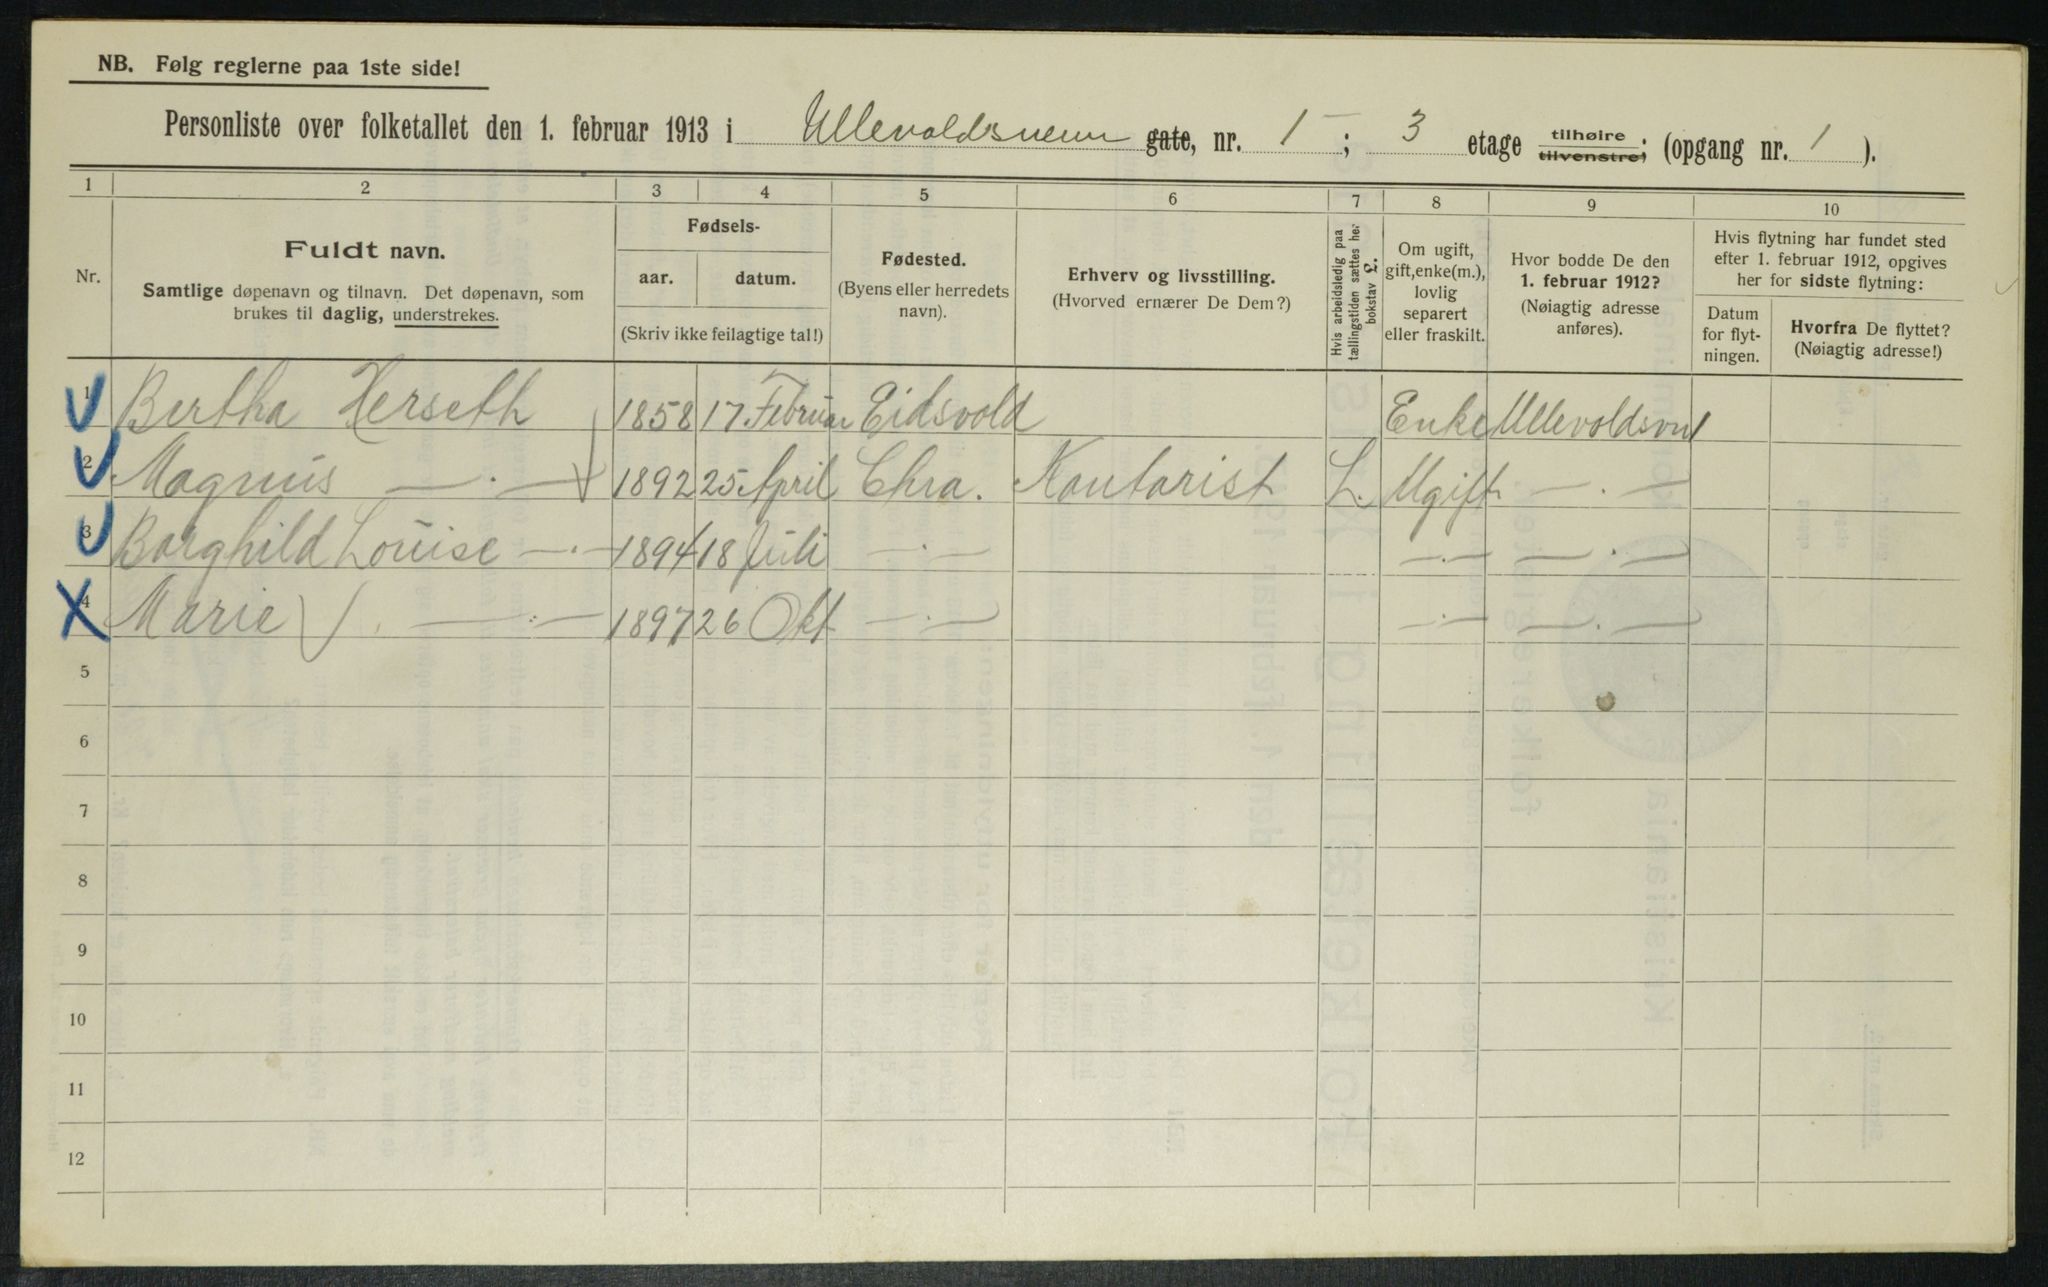 NB. Følg reglerne paa 1ste side!
Personliste over folketallet den 1. februar 1913 i Ullevoldsveien gate, nr. 1 ; 3 etage tilhøire tilvenstre; (opgang nr. 1 ).
1 2 3 4 5 6 7 8 9 10
Nr.
Fuldt navn.
Samtlige døpenavn og tilnavn. Det døpenavn, som
brukes til daglig, understrekes.
Fødsels-
aar. datum.
(Skriv ikke feilagtige tal!)
Fødested.
(Byens eller herredets
navn).
Erhverv og livsstilling.
(Hvorved ernærer De Dem?)
Hvis arbeidsledig paa
tællingstiden sættes her
bokstav L.
Om ugift,
gift, enke(m.),
lovlig
separert
eller fraskilt.
Hvor bodde De den
1. februar 1912?
(Nøiagtig adresse
anføres).
Hvis flytning har fundet sted
efter 1. februar 1912, opgives
her for sidste flytning:
Datum
for flyt-
ningen.
Hvorfra De flyttet?
(Nøiagtig adresse!)
1 Bertha Herseth 1858 17 Februar Eidsvold Enke Ullevoldsvn 1
2 Magnus — · — 1892 25 April Chra. Kontorist L. Ugift — · —
3 Borghild Louise — · — 1894 18 Juli — · — — · — — · —
4 Marie — · — 1897 26 Okt — · — — · — — · —
5
6
7
8
9
10
11
12